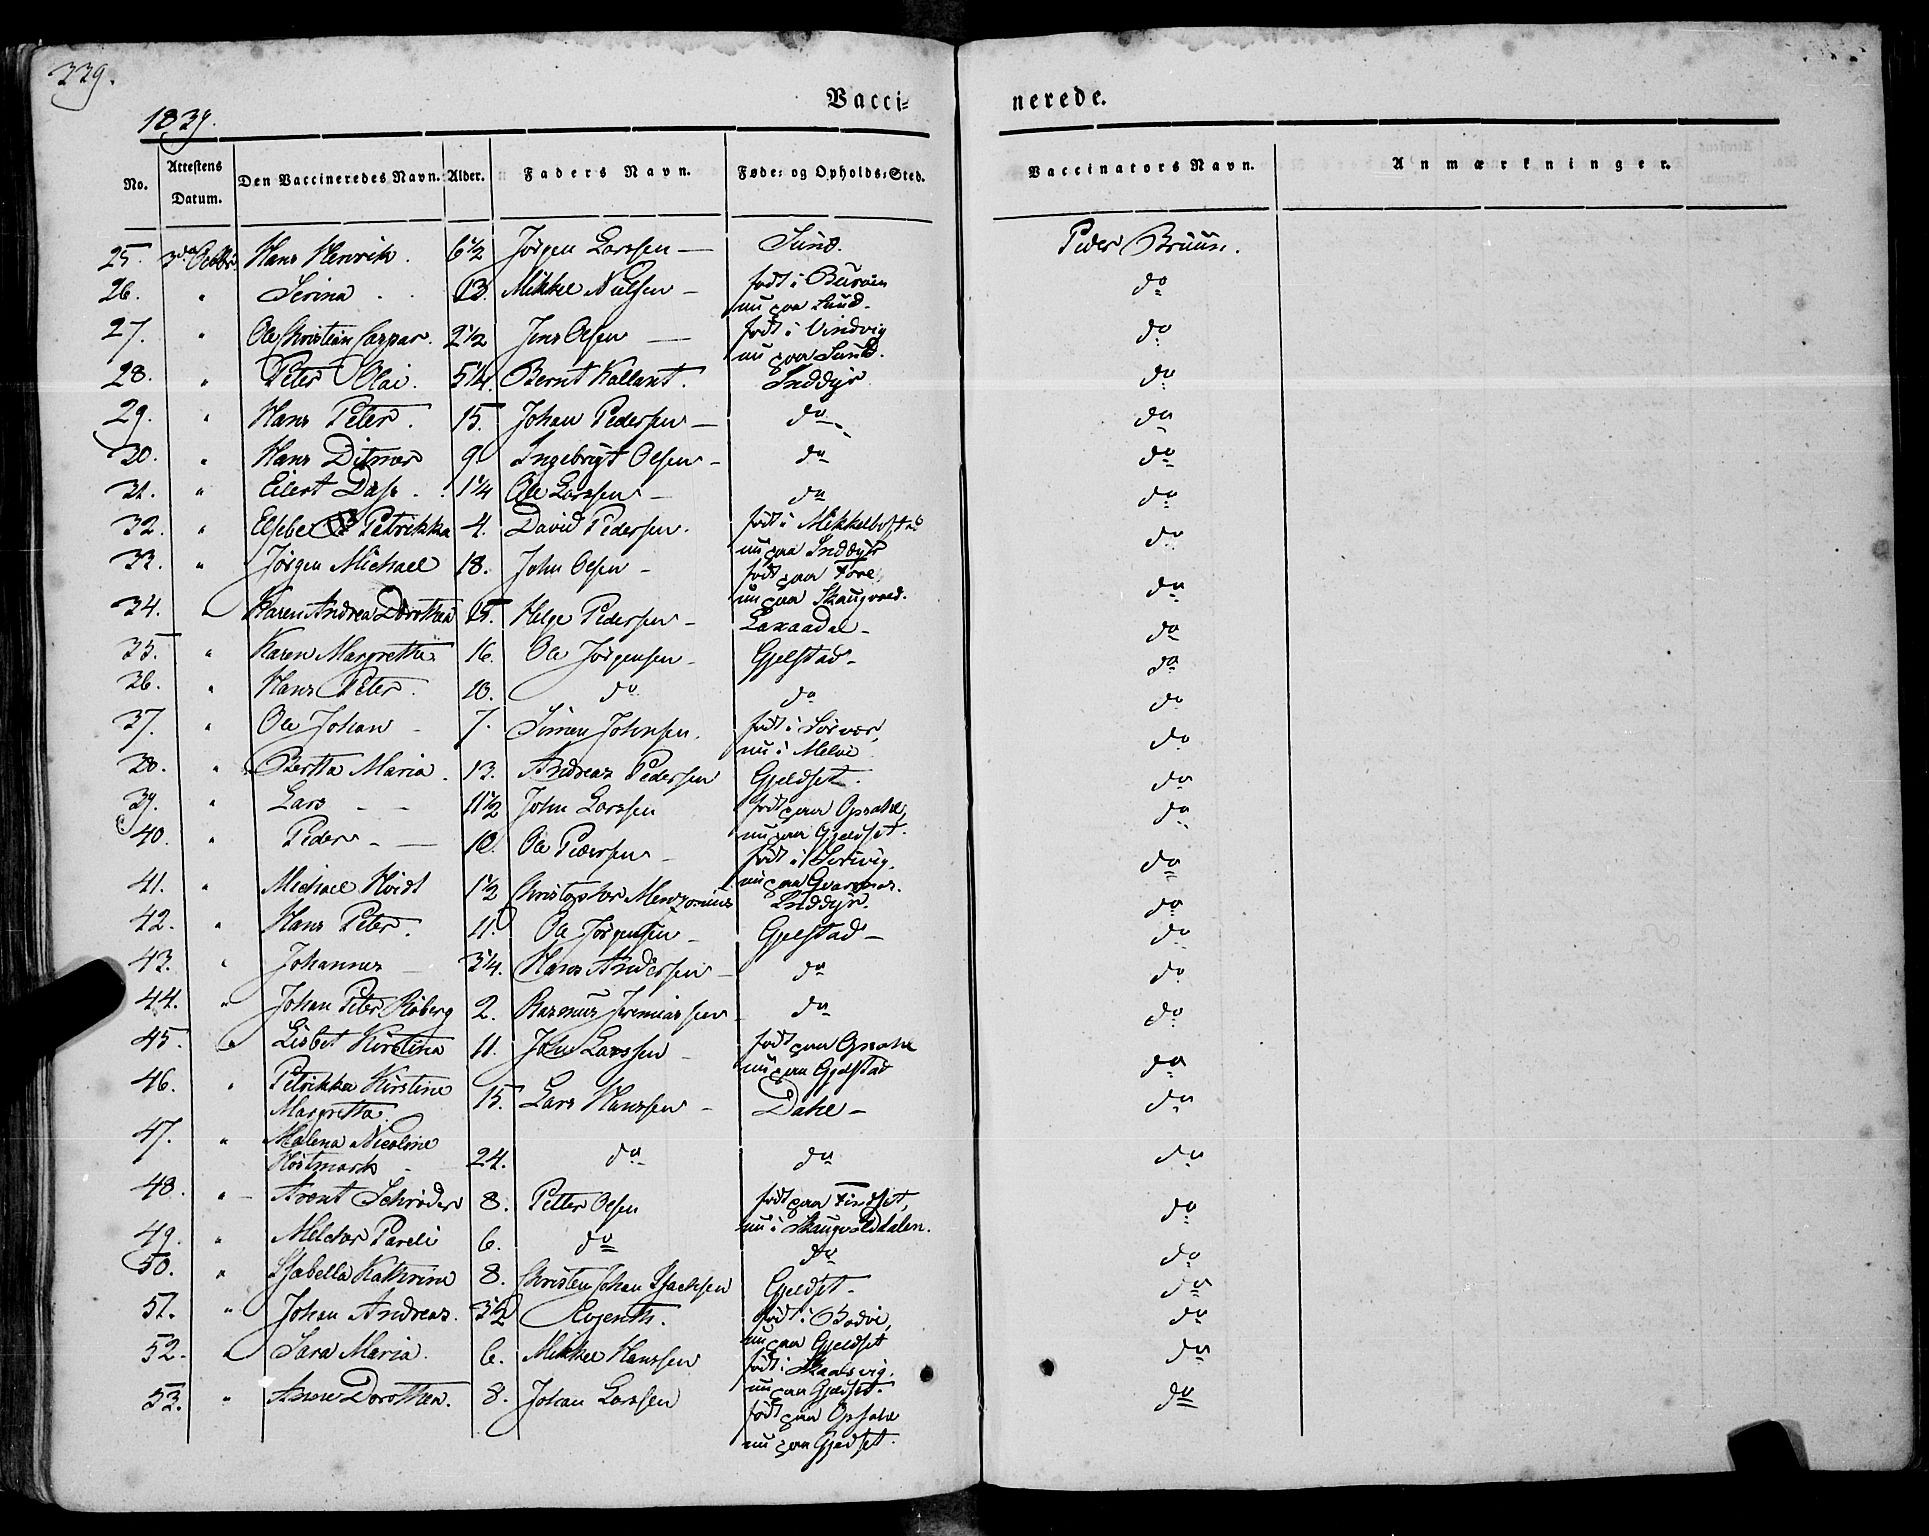 339.
Vacci-
nerede.
1839.
No. Attestens Datum. Den Vaccineredes Navn. Alder. Faders Navn. Føde- og Opholds-Sted. Vaccinators Navn. Anmærkninger.
25. 3die Octbr Hans Henrik 6 1/2 Jørgen Larssen — Sund. Peder Bruun.
26. " Serina 13. Mikkel Nielsen — født i
nu paa Sund. do
27. " Ole Christian Caspar. 2 1/2 Jens Olsen — født i Vindvig
nu paa Sund. do
28. " Peter Olai. 5 1/4. Bernt Kallant. Inddyr. do
29. " Hans Peter. 15. Johan Pedersen — do do
30. " Hans Ditmar 9. Ingebrigt Olsen — do do
31. " Eilert Dass. 1 1/4 Ole Larssen — do do
32. " Elsbet Petrikka 4. David Pedersen. født i
nu paa Inddyr do
33. " Jørgen Michael 18. John Olsen — født paa Fore,
nu paa Skaugvold. do
34. " Karen Andrea Dorothea 15. Helge Pedersen — Laxaadal — do
35. " Karen Margretha 16. Ole Jørgensen — Gjelstad — do
36. " Hans Peter. 10. do do do
37. " Ole Johan — 7. Simon Johnsen. født i Sørvær,
nu i Melvi do
38. " Bertha Maria. 13. Andreas Pedersen Gjeldset. do
39. " Lars — — 11 1/2 John Larssen født paa Opsahl,
nu paa Gjeldset. do
40. " Peder — — 10. Ole Pedersen — født i
nu paa do
41. " Michael Hvidt 1 1/2 Christopher Inddyr. do
42. " Hans Peter. 11. Ole Jørgensen — Gjelstad — do
43. " Johannes — 3 1/4. Hans Andersen — do do
44. " Johan Peter Røberg 2. Rasmus Jeremiassen do do
45. " Lisbet Kirstina 11. John Larssen — født paa Opsahl
nu paa Gjelstad do
46. " Petrikka Kirstine
Margretha. 15. Lars Hanssen — Dahl — do
47. " Malena Nicoline
Hostmark — 24. do do do
48. " Arent Schrøder 8. Petter Olsen født paa Findset,
nu i Skaugvolddalen. do
49. " Melchor Pareli 6. do do do
50. " Isabella Kathrina 8. Christen Johan Isachsen Gjeldset — do
51. " Johan Andreas. 3 1/2 født i Bodøe,
nu paa Gjeldset do
52. " Sara Maria. 6. Mikkel Hanssen født i Skaalsvig,
nu paa Gjeldset. do
53. " Anne Dorothea. 8. Johan Larssen født paa Opsahl
nu paa Gjeldset. do